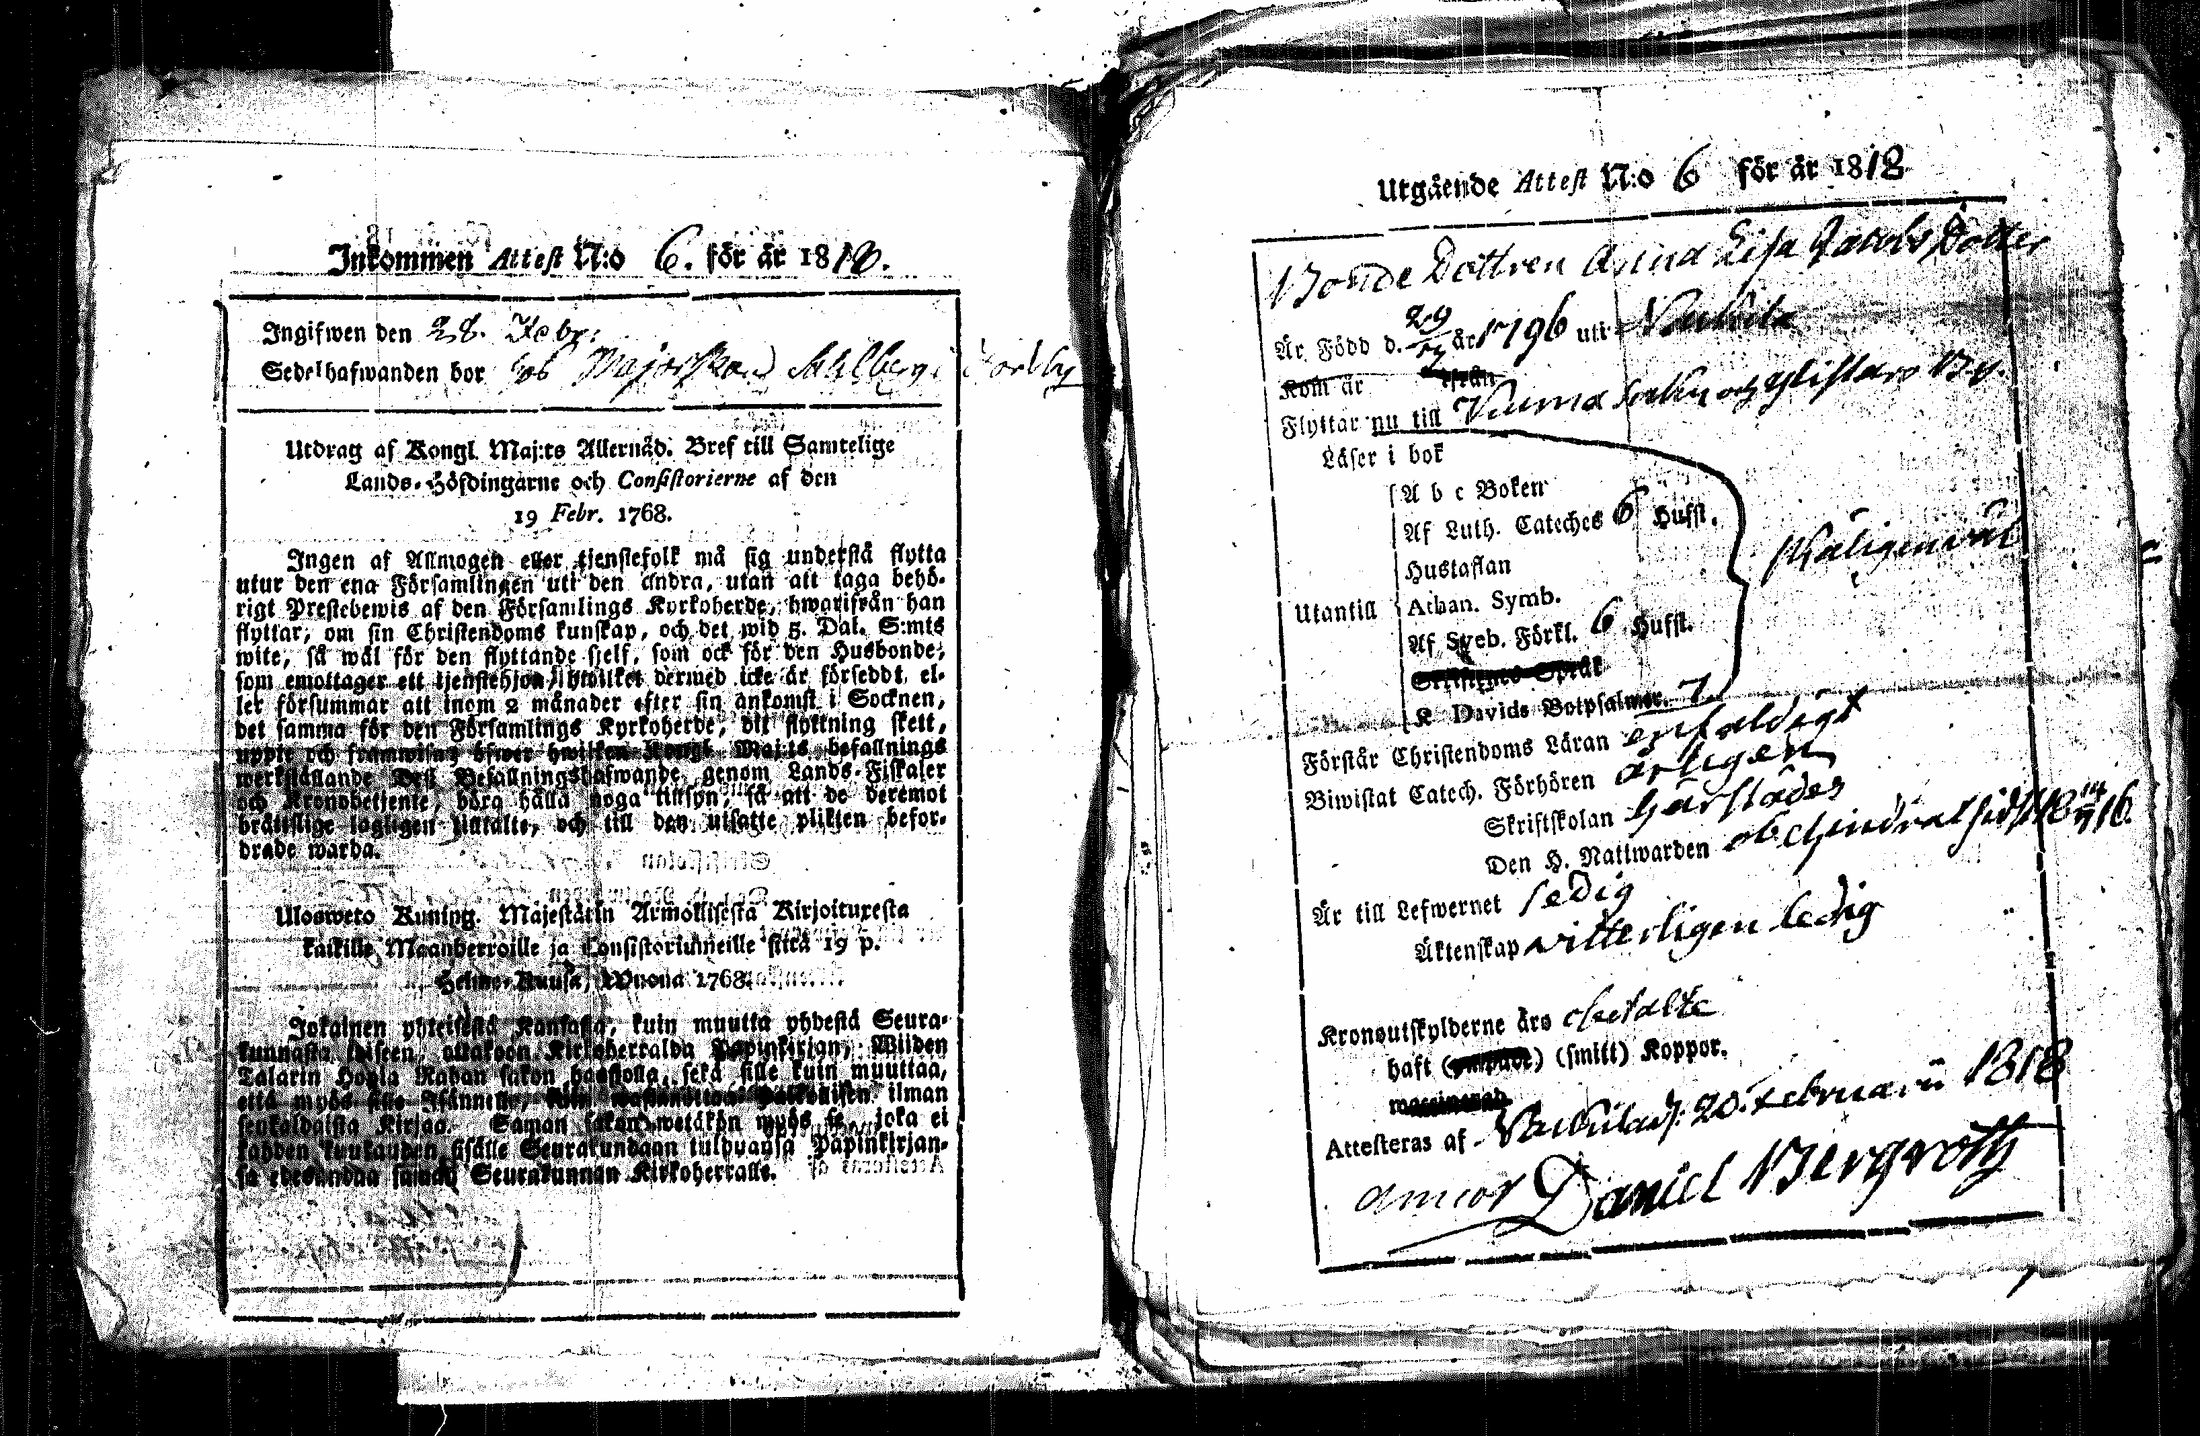 Inkommen Attest N:o 6. för år 1818.
Ingifwen den 28. Febr:
Sedelhafwanden bor hos Majorskan
Utdrag af Kongl. Maj:ts Allernåd. Bref till Samtelige
Lands-Höfdingarne och Consistorierne af den
19 Febr. 1768.
Ingen af Allmogen eller tjenstefolk må sig understå flytta
utur den ena Församlingen uti den andra, utan att taga behö-
rigt Prestebewis af den Församlings Kyrkoherde, hwarifrån han
flyttar, om sin Christendoms kunskap, och det wid 5. Dal. S:mts
wite, så wäl för den flyttande sjelf, som ock för den Husbonde,
som emottager ett tjenstehjon, hwilket dermed icke är försedt, el-
ler försummar att inom 2 månader efter sin ankomst i Socknen,
det samma för den Församlings Kyrkoherde, dit flyttning skett,
uppte och framwisa; öfwer hwilken Kongl. Maj:ts befallnings
werkställande Dess Befallningshafwande, genom Lands-Fiskaler
och Kronobetjente, böra hålla noga tillsyn, så att de deremot
bråttslige lagligen tilltalte, och till den utsatte plikten befor-
drade warda.
Ulosweto Kuning. Majestätin Armollisesta Kirjoituxesta
kaikille Maanherroille ja Consistoriumeille siitä 19 p.
Helme-Kuusa, Wuona 1768.
Jokainen yhteisestä Kansasta, kuin muutta yhdestä Seura-
kunnasta toiseen, ottakoon Kirkoherralda Papinkirjan, Wiiden
Talarin Hopia Rahan sakon haastolla, sekä sille kuin muuttaa,
että myös sille Isännelle, kuin ilman
senkaldaista Kirjaa. Saman sakon wetäkön myös se, joka ei
kahden kuukauden sisälle Seurakundaan tulduansa Papinkirjan-
sa edesandaa saman Seurakunnan Kirkoherralle.
Utgående Attest N:o 6 för år 1818
Bonde Dottren Anna Lisa Jacobs Dotter
Är Född d. 29 år 1796 uti
Kom år ifrån
Flyttar nu till By.
Läser i bok
A b c Boken
Af Luth. Cateches 6 Hufst.
Hustaflan
Utantill Athan. Symb.
Af Sveb. Förkl. 6 Hufst.
Skriftenes Språk
K Davids Botpsalmer. 7
Förstår Christendoms Läran enfaldigt
Biwistat Catech. Förhören årligen
Skriftskolan härstädes
Den H. Nattwarden
Är till Lefwernet sedig
Äktenskap witterligen ledig
Kronoutskylderne äro obetalte
haft () (smitt) Koppor.
Attesteras af 20. Februarii 1818
Daniel Bergroth